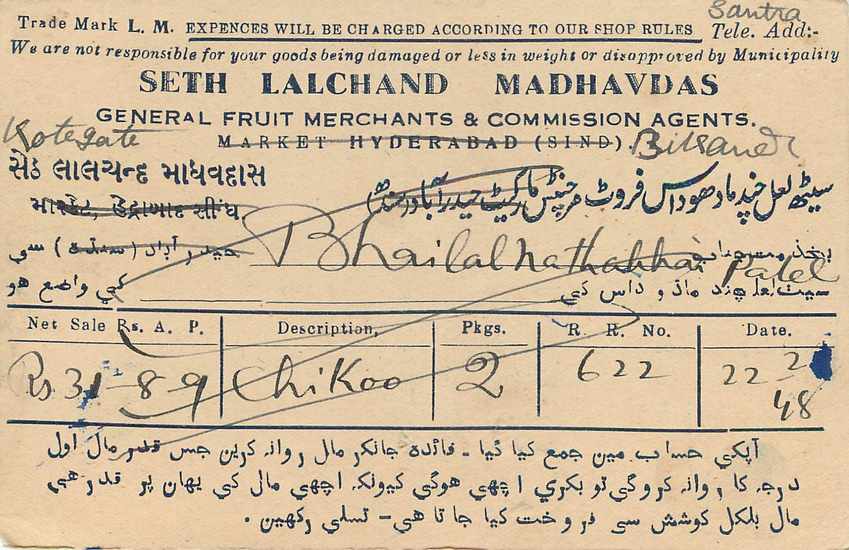 Santra
Trade Mark L. M. EXPENCES WILL BE CHARGED ACCORDING TO OUR SHOP RULES Tele. Add:-
We are not responsible for your goods being damaged or less in weight or disapproved by Municipality
SETH LALCHAND MADHAVDAS
GENERAL FRUIT MERCHANTS & COMMISSION AGENTS.
Kotegate MARKET HYDERABAD (SIND)
સેઠ લાલચન્દ માધવદાસ
سیٹھ لعل چند مادھوداس فروٹ مرچنٹس مارکیٹ حیدرآباد سندھ
માર્કેટ, હૈદ્રાબાદ સીંધ.
حيدر آباد (سندھ) سي
Bhailal Nathabhai Patel
کي واضع هو
Net Sale Rs. A. P. Description, Pkgs. R. R. No. Date.
Rs. 31-8-9 Chikoo 2 622 22 2 48
آپکي حساب مين جمع کيا گيا - فائده جانکر مال روانه کرين جس قدر مال اول
درجه کا روانه کروگي تو بکري اچهي هوگي کيونکه اچهي مال کي يهان پر قدر هي
مال بلکل کوشش سي فروخت کيا جاتا هي - تسلي رکهين .